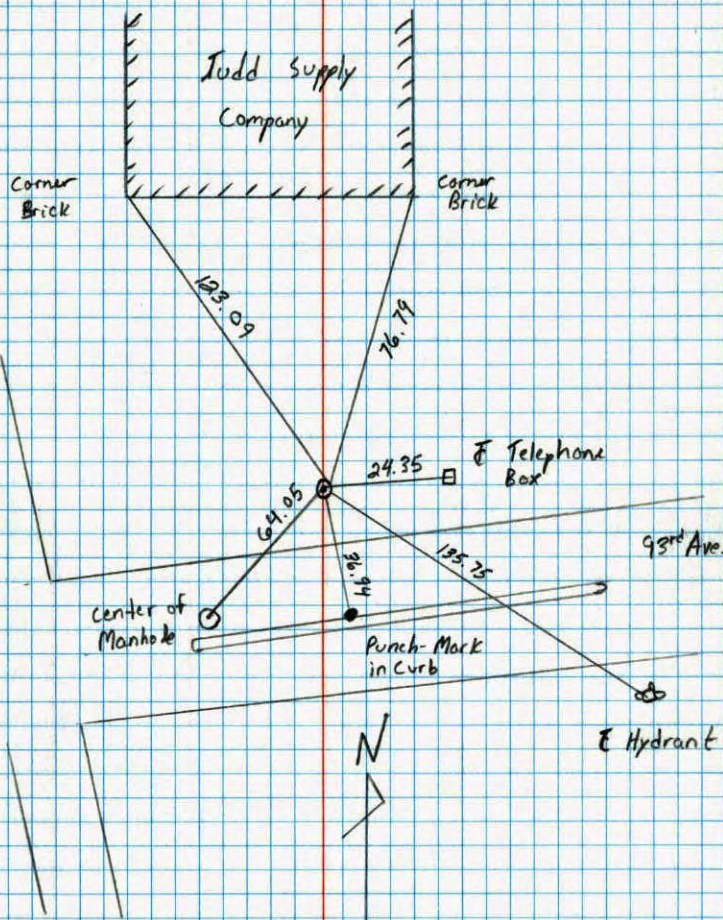 Judd Supply
Company
Corner
Brick
Corner
Brick
123.09
76.79
24.35
℄ Telephone
Box
64.05
36.94
135.75
93rd Ave.
Center of
Manhole
Punch-Mark
in Curb
℄ Hydrant
N